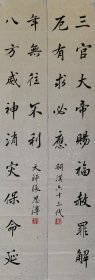 三官大帝賜福赦罪解
厄有求必應
嗣漢六十三代
八方威神消灾保命延
年無往不利
天師張恩溥